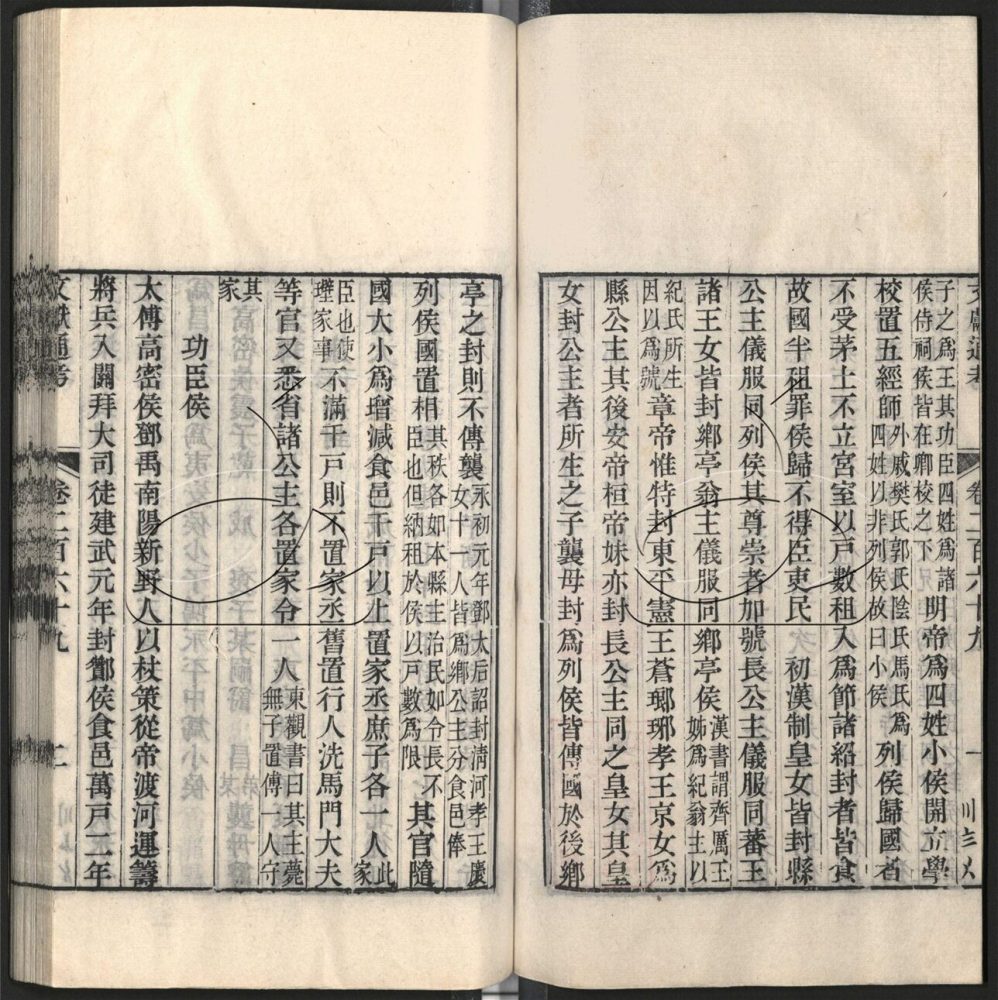 文獻通考 卷二百六十九 一
子之爲王其功臣四姓爲諸
侯侍祠侯皆在卿校之下
明帝爲四姓小侯開立學
校置五經師
外戚樊氏郭氏陰氏馬氏爲
四姓以非列侯故曰小侯
列侯歸國者
不受茅土不立宮室以戸數租入爲節諸紹封者皆食
故國半租罪侯歸不得臣吏民
初漢制皇女皆封縣
公主儀服同列侯其尊崇者加號長公主儀服同蕃王
諸王女皆封鄉亭翁主儀服同鄉亭侯
漢書謂齊厲王
姊爲紀翁主以
紀氏所生
因以爲號
章帝惟特封東平憲王蒼瑯琊孝王京女爲
縣公主其後安帝桓帝妹亦封長公主同之皇女其皇
女封公主者所生之子襲母封爲列侯皆傳國於後鄉
亭之封則不傳襲
永初元年鄧太后詔封清河孝王慶
女十一人皆爲鄉公主分食邑俸
列侯國置相
其秩各如本縣主治民如令長不
臣也但納租於侯以戸數爲限
其官隨
國大小爲增減食邑千戸以上置家丞庶子各一人
此家
臣也使
理家事
不滿千戸則不置家丞舊置行人洗馬門大夫
等官又悉省諸公主各置家令一人
東觀書曰其主薨
無子置傅一人守
其
家
功臣侯
太傅高密侯鄧禹南陽新野人以杖策從帝渡河運籌
將兵入關拜大司徒建武元年封酇侯食邑萬戸三年
文獻通考 卷二百六十九 二